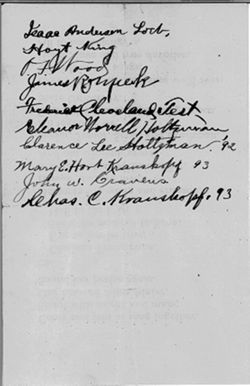 Isaac Anderson Loeb,
Hoyt King
James
Frederick Cleveland Test
Eleanor Norrell Holtzman,
Clarence Lee Holtzman. 92
Mary E. Hort Krauskopf 93
John W. Cravens
Chas. C. Krauskopf. 93